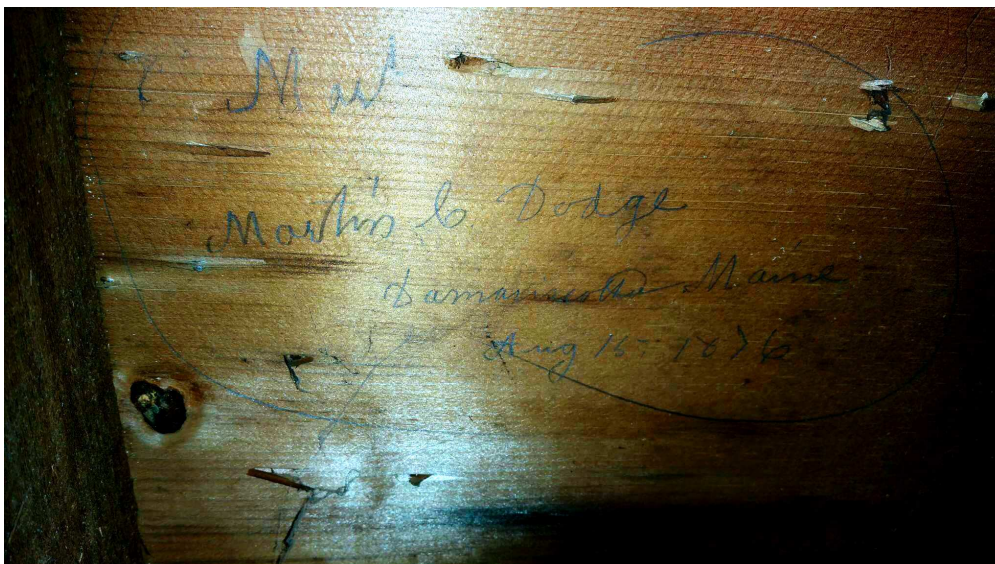 Mart
Martin C Dodge
Damariscotta Maine
Aug 15 - 1876